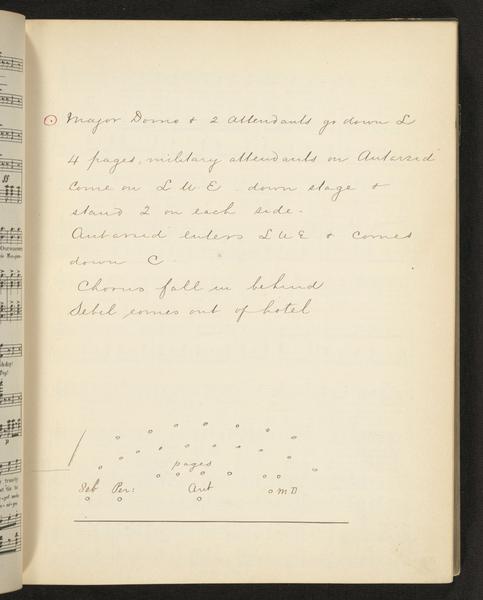 Major Domo & 2 attendants go down L
4 pages, military attendants on Antarsid
Come on L U E - down stage &
stand 2 on each side.
Antarsid enters L U E & comes
down C.
Chorus fall in behind
Sebil comes out of hotel
pages
Seb Per: Ant M D
ff
p